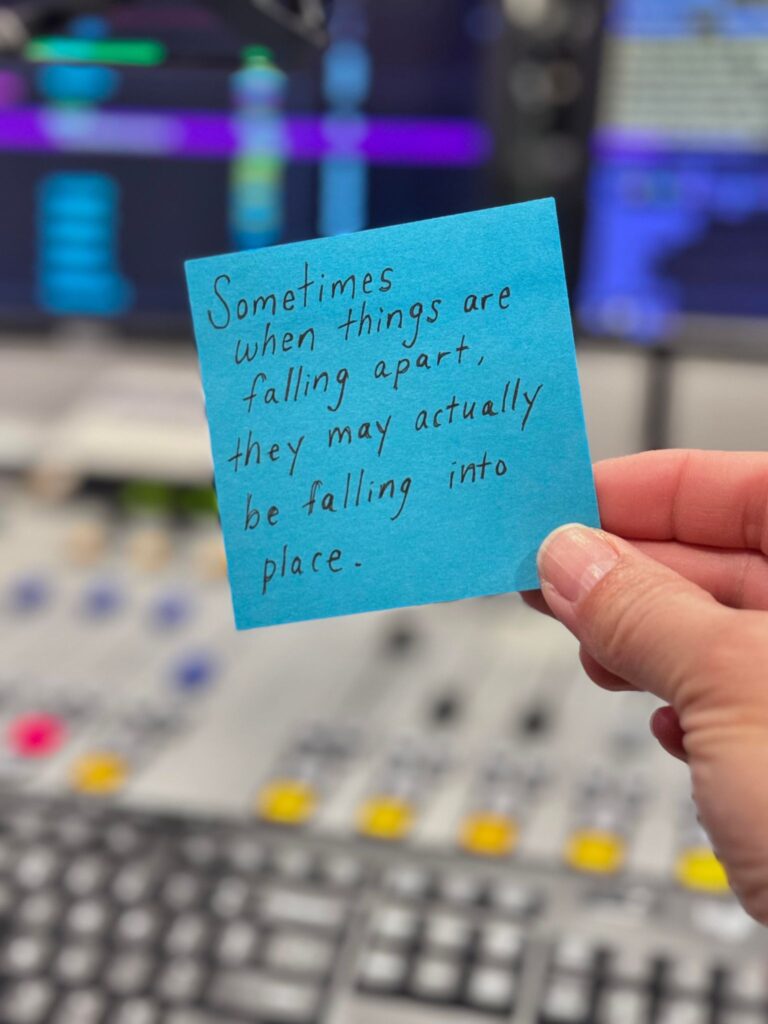 Sometimes
when things are
falling apart,
they may actually
be falling into
place.